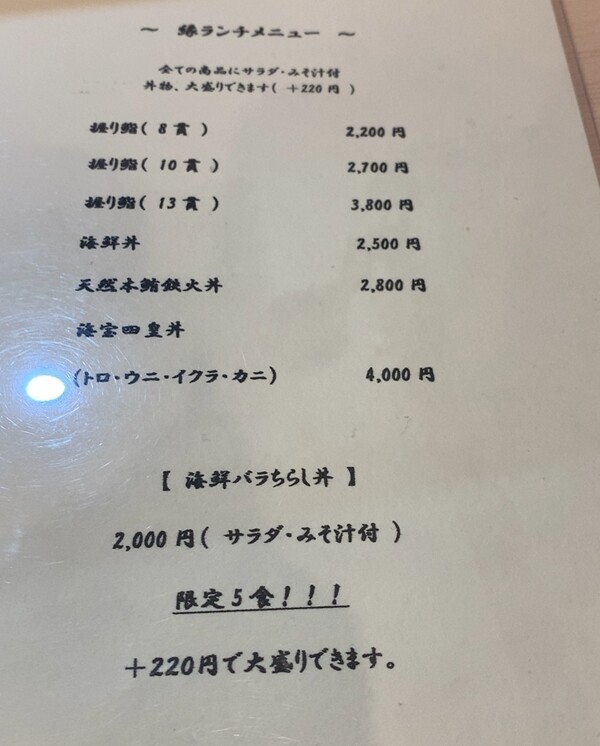 ～ 縁ランチメニュー ～
全ての商品にサラダ・みそ汁付
丼物、大盛りできます(＋220円)
握り鮨(8貫) 2,200円
握り鮨(10貫) 2,700円
握り鮨(13貫) 3,800円
海鮮丼 2,500円
天然本鮪鉄火丼 2,800円
海宝四皇丼
(トロ・ウニ・イクラ・カニ) 4,000円
【海鮮バラちらし丼】
2,000円(サラダ・みそ汁付)
限定5食!!!
＋220円で大盛りできます。